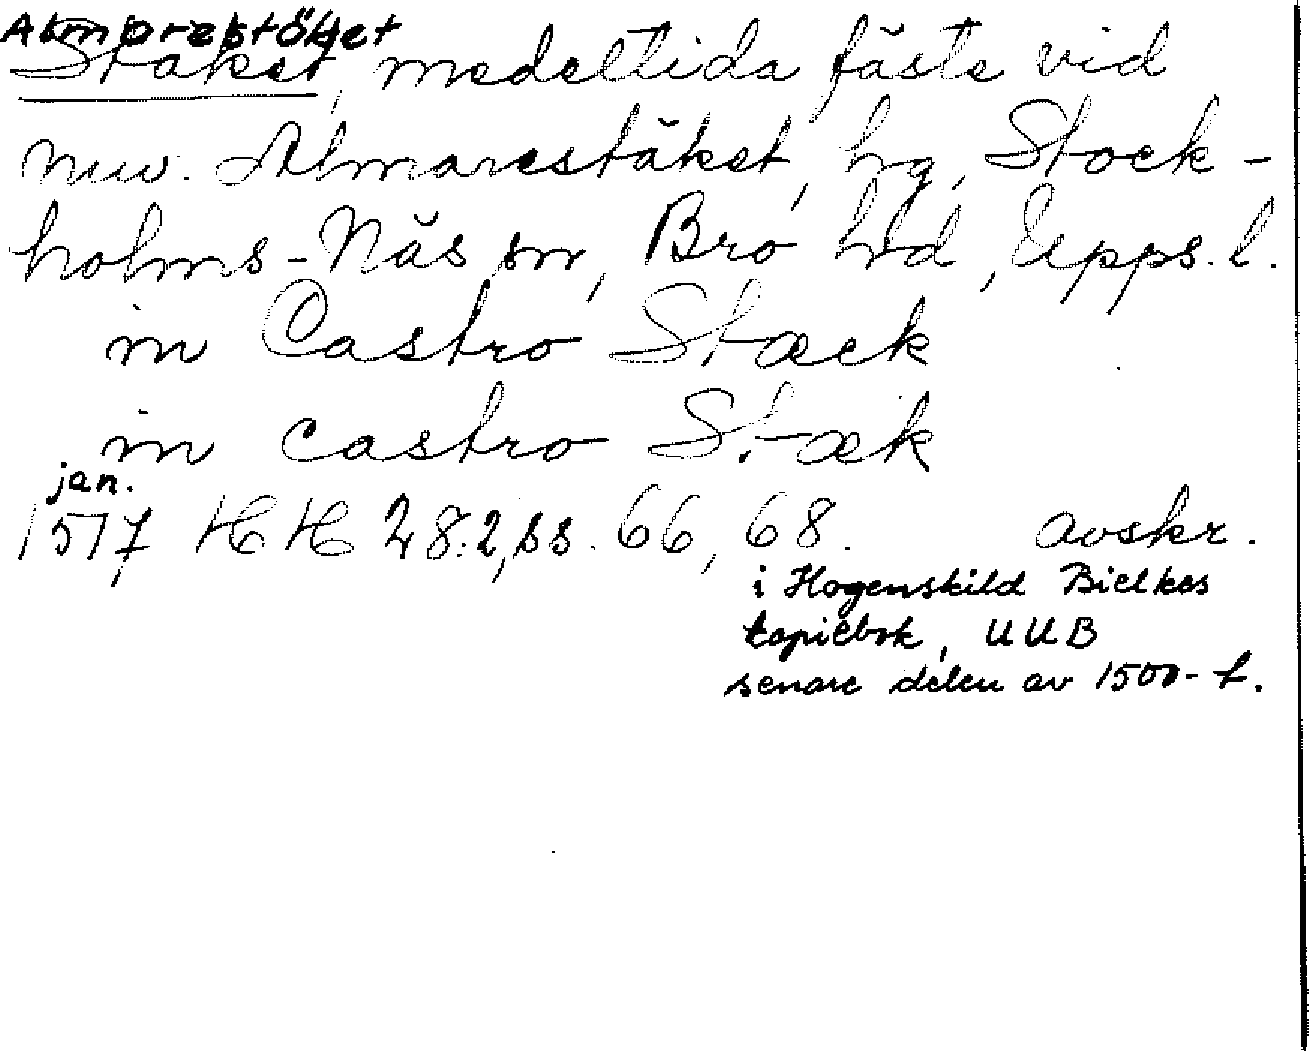 Almarestäket
Stäket, medeltida fäste vid
nuv. Almarestäket, hg, Stock-
holms-Näs sn, Bro hd, Upps. l.
in Castro Stæck
in castro Stæk
jan.
1517 HH 28:2, ss. 66, 68. avskr.
i Hogenskild Bielkes
kopiebok, UUB
senare delen av 1500-t.